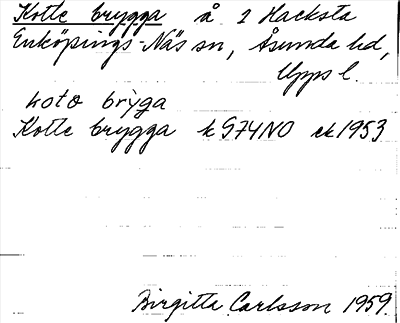 Kotte brygga å 2 Hacksta
Enköpings-Näs sn, Åsunda hd,
Upps l.
kotɵ bryga
Kotte brygga k G74NO ek 1953
Birgitta Carlsson 1959.